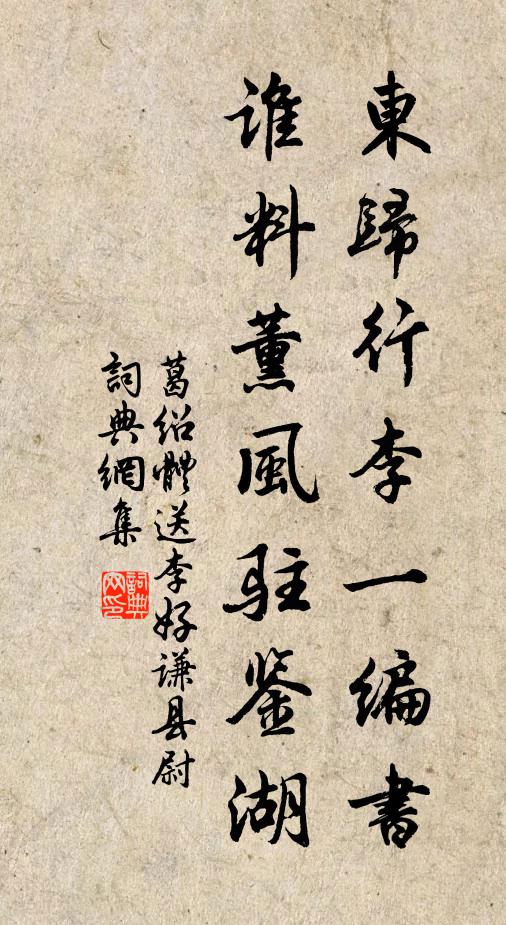 東歸行李一編書
誰料薰風駐鉴湖
葛绍體送李好谦县尉
詞典網集
詞典网印